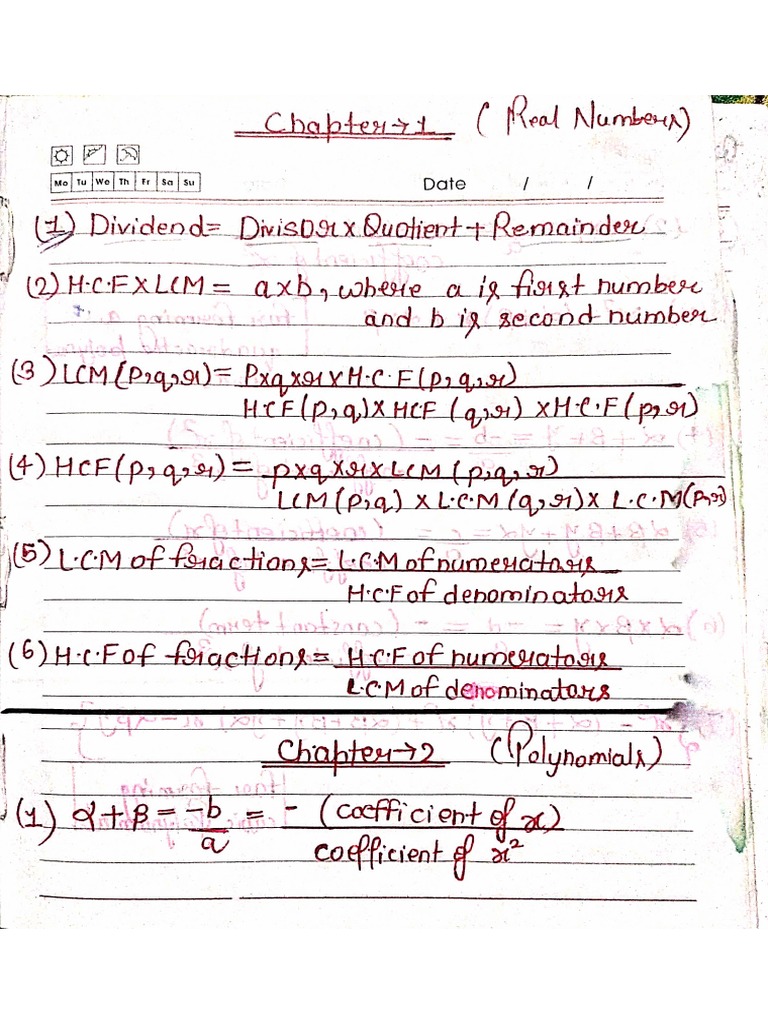 Chapter→1 (Real Numbers)
Mo Tu We Th Fr Sa Su
Date / /
(1) Dividend = Divisor x Quotient + Remainder
(2) H.C.F x LCM = a x b, where a is first number
and b is second number
(3) LCM (p,q,r) = p x q x r x H.C.F (p,q,r)
HCF (p,q) x HCF (q,r) x H.C.F (p,r)
(4) HCF (p,q,r) = p x q x r x LCM (p,q,r)
LCM (p,q) x L.C.M (q,r) x L.C.M (p,r)
(5) L.C.M of fractions = L.C.M of numerators
H.C.F of denominators
(6) H.C.F of fractions = H.C.F of numerators
L.C.M of denominators
Chapter→2 (Polynomials)
(1) α + β = -b = - (coefficient of x)
a coefficient of x²